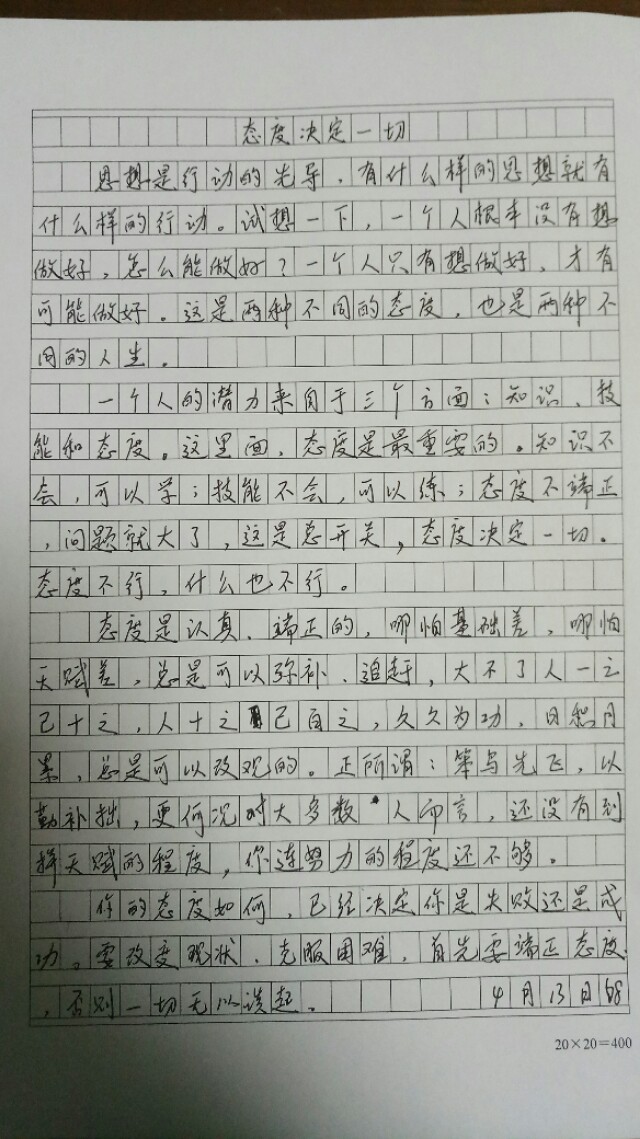 态度决定一切
思想是行动的先导，有什么样的思想就有
什么样的行动。试想一下，一个人根本没有想
做好，怎么能做好？一个人只有想做好，才有
可能做好。这是两种不同的态度，也是两种不
同的人生。
一个人的潜力来自于三个方面：知识、技
能和态度。这里面，态度是最重要的。知识不
会，可以学；技能不会，可以练；态度不端正
，问题就大了，这是总开关，态度决定一切。
态度不行，什么也不行。
态度是认真、端正的，哪怕基础差，哪怕
天赋差，总是可以弥补、追赶，大不了人一之
己十之，人十之己百之，久久为功，日积月
累，总是可以改观的。正所谓：笨鸟先飞，以
勤补拙，更何况对大多数人而言，还没有到
拼天赋的程度，你连努力的程度还不够。
你的态度如何，已经决定你是失败还是成
功。要改变现状、克服困难，首先要端正态度
，否则一切无以谈起。 4月13日
20×20=400